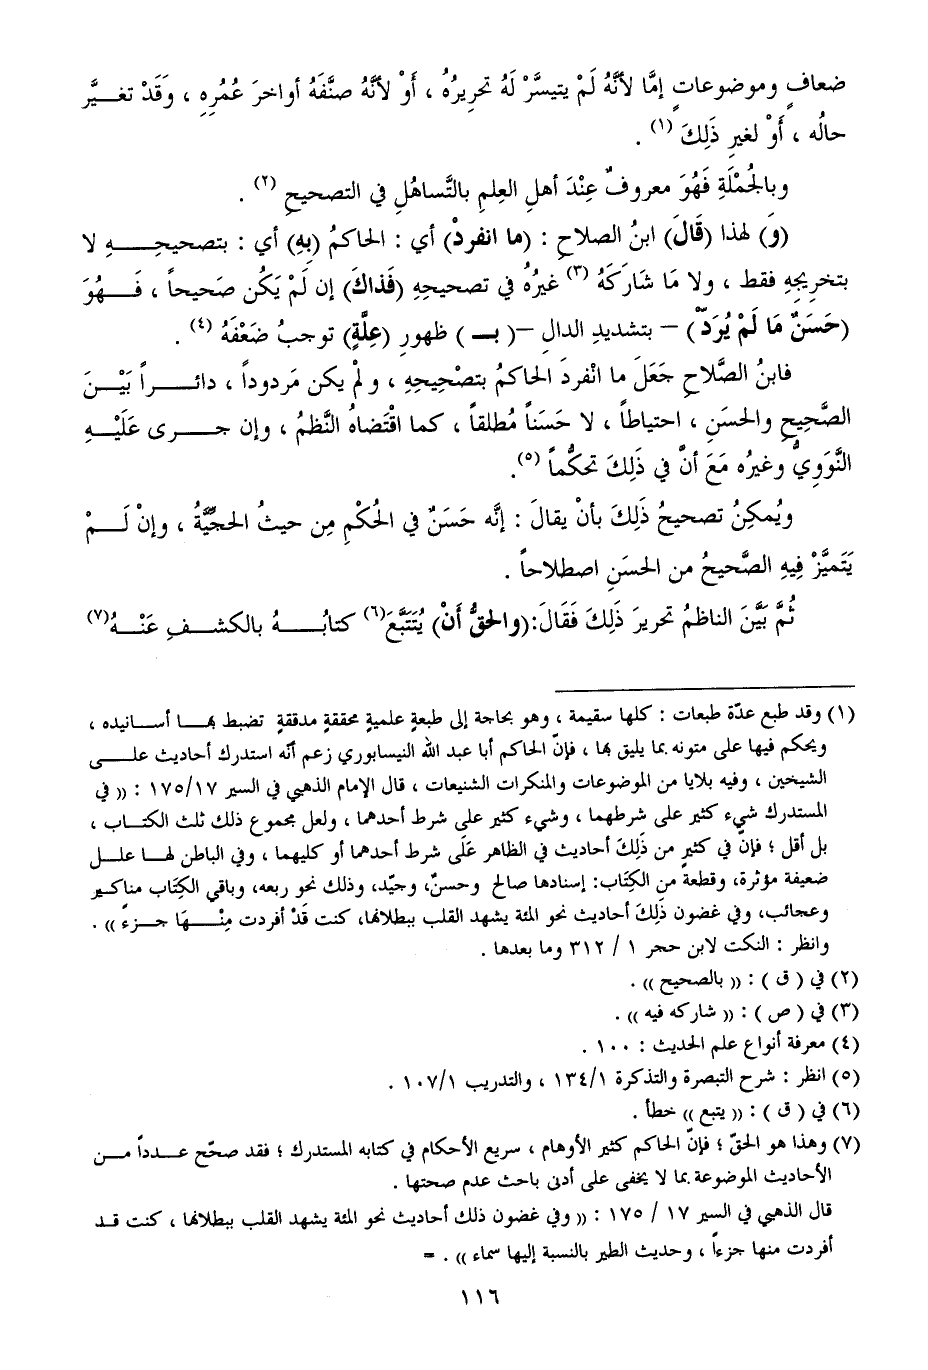 ضعافٍ وموضوعاتٍ إمَّا لأنَّهُ لَمْ يتيسَّرْ لَهُ تحريرُهُ ، أَوْ لأنَّهُ صنَّفَهُ أواخرَ عُمُرِهِ ، وَقَدْ تغيَّر
حالُه ، أَوْ لغيرِ ذَلِكَ (١) .
وبالجُمْلَةِ فَهُوَ معروفٌ عِنْدَ أهلِ العِلمِ بالتَّساهُلِ في التصحيحِ (٢) .
(وَ) لهذا (قَالَ) ابنُ الصلاحِ : (ما انفردْ) أي : الحاكمُ (بِهِ) أي : بتصحيحِهِ لا
بتخريجِهِ فقط ، ولا مَا شَارَكَهُ (٣) غيرُهُ في تصحيحِهِ (فَذاكَ) إن لَمْ يَكُن صَحيحاً ، فَهُوَ
(حَسَنٌ مَا لَمْ يُرَدّْ) – بتشديدِ الدال –( بـ ) ظهورِ (عِلَّةٍ) توجبُ ضَعْفَهُ (٤) .
فابنُ الصَّلاحِ جَعَلَ ما انْفردَ الحاكمُ بتصْحِيحِهِ ، ولَمْ يكن مَردوداً ، دائراً بَيْنَ
الصَّحِيحِ والحسَنِ ، احتياطاً ، لا حَسَناً مُطلقاً ، كما اقْتَضاهُ النَّظمُ ، وإن جرى عَلَيْهِ
النَّوَوِيُّ وغيرُه مَعَ أنَّ في ذَلِكَ تحكُّماً (٥).
ويُمكِنُ تصحيحُ ذَلِكَ بأنْ يقالَ : إنَّه حَسَنٌ في الحُكْمِ مِن حيثُ الحجيَّةُ ، وإنْ لَمْ
يَتَميَّزْ فِيهِ الصَّحيحُ من الحسَنِ اصطلاحاً .
ثُمَّ بَيَّنَ الناظمُ تحريرَ ذَلِكَ فَقَالَ:(والحقُّ أنْ) يُتَتَبَّعَ(٦) كتابُهُ بالكشفِ عَنْهُ(٧)
(١) وقد طبع عدّة طبعات : كلها سقيمة ، وهو بحاجة إلى طبعةٍ علميةٍ محققةٍ مدققةٍ تضبط بها أسانيده ،
ويحكم فيها على متونه بما يليق بها ، فإنّ الحاكم أبا عبد الله النيسابوري زعم أنّه استدرك أحاديث على
الشيخين ، وفيه بلايا من الموضوعات والمنكرات الشنيعات ، قال الإمام الذهبي في السير ١٧٥/١٧ : (( في
المستدرك شيء كثير على شرطهما ، وشيء كثير على شرط أحدهما ، ولعل مجموع ذلك ثلث الكتاب ،
بل أقل ؛ فإنّ في كثيرٍ من ذَلِكَ أحاديث في الظاهر عَلَى شرط أحدهما أو كليهما ، وفي الباطن لها علل
ضعيفة مؤثرة، وقطعة من الكِتَاب: إسنادها صالح وحسنٌ، وجيّد، وذلك نحو ربعه، وباقي الكِتَاب مناكير
وعجائب، وفي غضون ذَلِكَ أحاديث نحو المئة يشهد القلب ببطلانها، كنت قَدْ أفردت مِنْهَا جزءً )) .
وانظر : النكت لابن حجر ١ / ٣١٢ وما بعدها .
(٢) في ( ق ) : (( بالصحيح )) .
(٣) في ( ص ) : (( شاركه فيه )) .
(٤) معرفة أنواع علم الحديث : ١٠٠ .
(٥) انظر : شرح التبصرة والتذكرة ١٣٤/١ ، والتدريب ١٠٧/١ .
(٦) في ( ق ) : (( يتبع )) خطأ .
(٧) وهذا هو الحقّ ؛ فإنّ الحاكم كثير الأوهام ، سريع الأحكام في كتابه المستدرك ؛ فقد صحّح عدداً من
الأحاديث الموضوعة بما لا يخفى على أدنى باحث عدم صحتها .
قال الذهبي في السير ١٧ / ١٧٥ : (( وفي غضون ذلك أحاديث نحو المئة يشهد القلب ببطلانها ، كنت قد
أفردت منها جزءاً ، وحديث الطير بالنسبة إليها سماء )) . =
١١٦